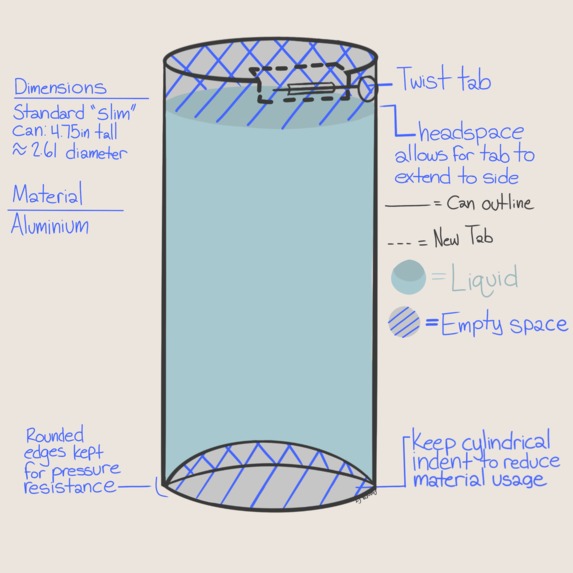 Dimensions
Standard "Slim"
Can: 4.75in tall
≈ 2.61 diameter
Material
Aluminium
Rounded
edges kept
for pressure
resistance
Twist tab
headspace
allows for tab to
extend to side
= Can outline
= New Tab
= Liquid
= Empty space
Keep cylindrical
indent to reduce
material usage